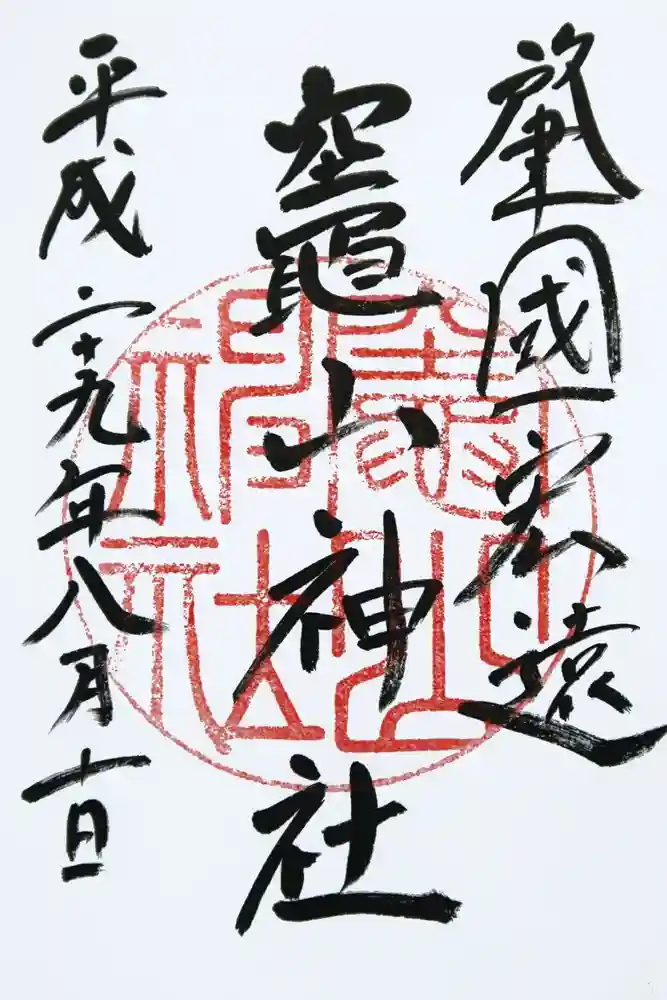 肇國宏遠
竈山神社
平成二十九年八月十日
竈山
神社